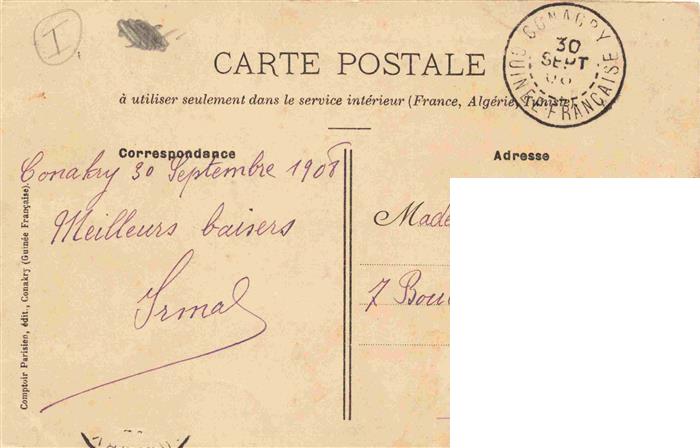 I
CONAKRY
30
SEPT
08
GUINÉE FRANÇAISE
CARTE POSTALE
à utiliser seulement dans le service intérieur (France, Algérie, Tunisie)
Correspondance
Conakry 30 Septembre 1908
Meilleurs baisers
Irma
Adresse
Made
7 Bou
Comptoir Parisien, édit., Conakry (Guinée Française).